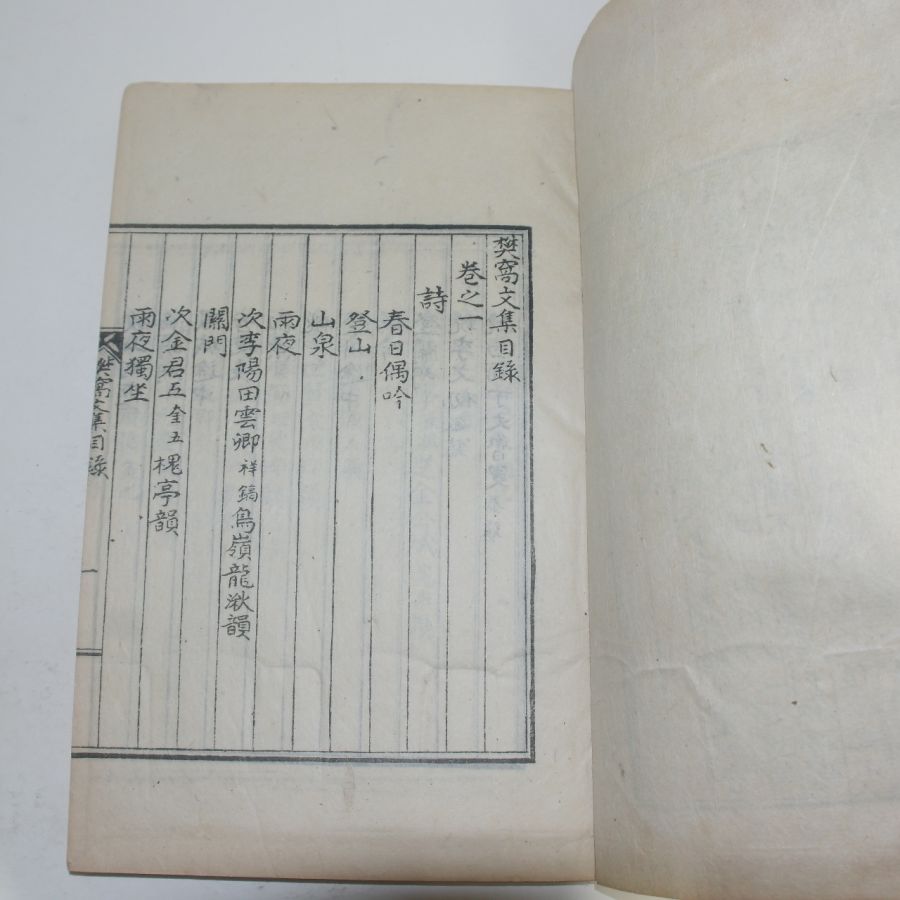 樊窩文集目錄
卷之一
詩
春日偶吟
登山
山泉
雨夜
次李陽田雲卿祥鎬鳥嶺龍湫韻
關門
次金君五奎五槐亭韻
雨夜獨坐
樊窩文集目錄
一